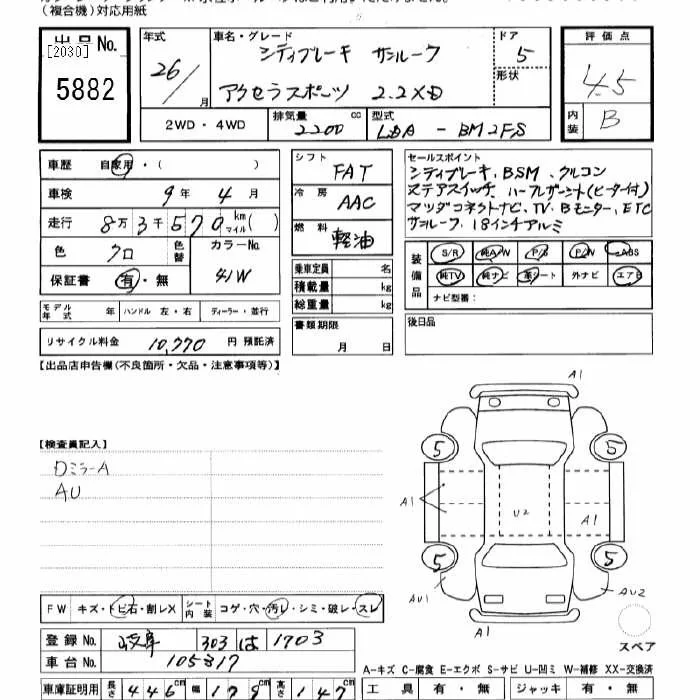 (複合機)対応用紙
出品No. [2030] 5882
年式 26/ 月
車名・グレード シティブレーキ サンルーフ アクセラスポーツ 2.2XD
ドア 5
形状
評価点 4.5
内装 B
2WD・4WD
排気量 2200 cc
型式 LDA-BM2FS
車歴 自家用・( )
車検 9年4月
走行 8万3千570km マイル( )
色 クロ 色替
カラーNo. 41W
保証書 有・無
シフト FAT
冷房 AAC
燃料 軽油
乗車定員 名
積載量 kg
総重量 kg
書類期限 月 日
セールスポイント
シティブレーキ、BSM、クルコン
ステアスイッチ、ハーフレザーシート(ヒーター付)
マツダコネクトナビ、TV、Bモニター、ETC
サンルーフ、18インチアルミ
装備品 S/R 純A/W P/S P/W ABS
純TV 純ナビ 革シート 外ナビ エアB
ナビ型番:
後日品
モデル年式 年 ハンドル 左・右 ディーラー・並行
リサイクル料金 10,770 円 預託済
【出品店申告欄(不良箇所・欠品・注意事項等)】
【検査員記入】
DミラーA
AU
A1
5 5
A1 U2 A1
5 5
AU1 AU2
A1
スペア
FW キズ・トビ石・割レX シート内装 コゲ・穴・汚レ・シミ・破レ・スレ
登録No. 岐阜 303 は 1703
車台No. 105317
車庫証明用 長さ 446cm 幅 179cm 高さ 147cm
A-キズ C-腐食 E-エクボ S-サビ U-凹ミ W-補修 XX-交換済
工具 有・無 ジャッキ 有・無